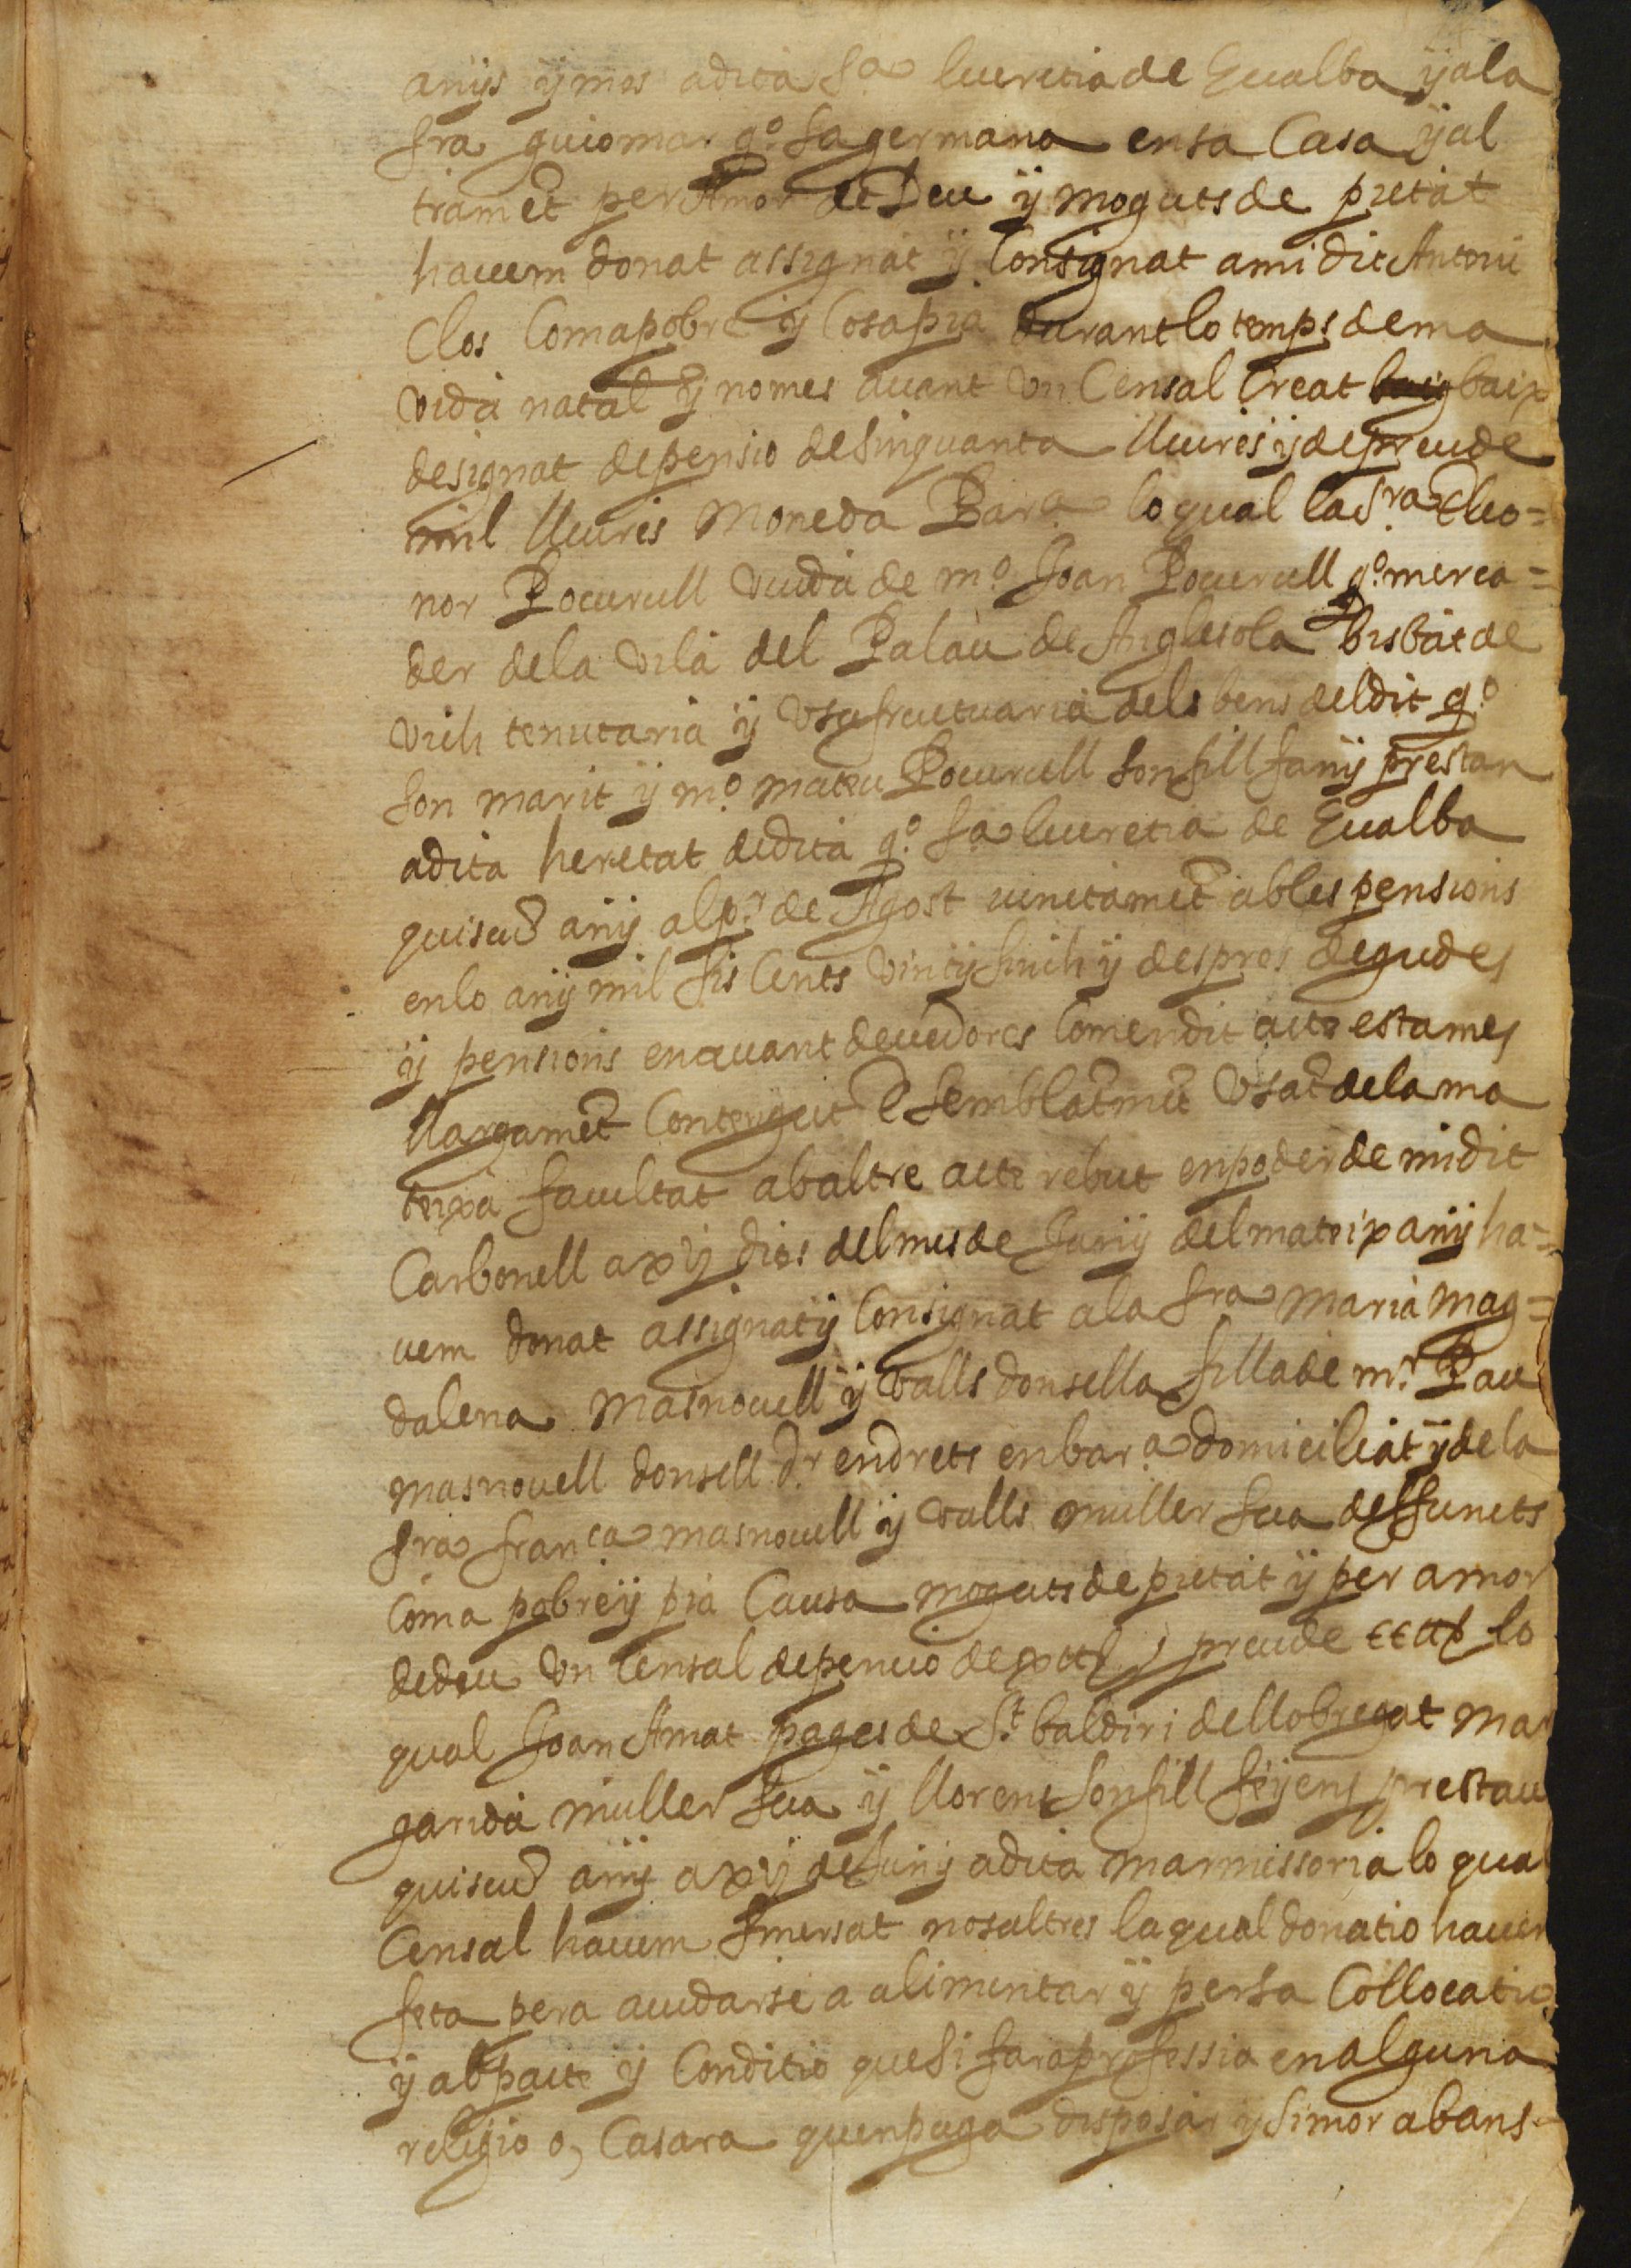 anys y mes a dita Sª lucretia de Gualba y a la
Sra guiomar qº sa germana en sa Casa y al
tramet per Amor de Deu y moguts de pietat
hauem donat assignat y Consignat a mi dit Antoni
Clos Com a pobre y Cosa pia durant lo temps de ma
vida natal y no mes auant Vn Censal Creat baix
designat de pensio de Sinquanta lliures y de preu de
mil lliures Moneda Barª lo qual la Sra Eleo=
nor Pocurull viuda de mº Joan Pocurull qº merca=
der de la vila del Palau de Anglesola bisbat de
Vich tenutaria y Vsufructuaria dels bens del dit qº
son marit y mº mateu Pocurull son fill fan y prestan
a dita heretat de dita qº Sª lucretia de Gualba
quiscun any al pr de Agost iunctament ab les pensions
en lo any mil sis Cents Vint y sinch y despres degudes
y pensions en auant deuedores Com en dit acte esta mes
llargamet Contengut E Semblatmet Vsat de la ma
texa facultat ab altre acte rebut en poder de mi dit
Carbonell a xij dies del mes de Juny del mateix any ha=
uem donat assignat y Consignat a la Sra Maria Mag=
dalena Masnouell y Valls donsella filla de mr Pau
Masnouell donsell Dr en drets en barª domiciliat y de la
Sra franca masnouell y Valls muller sua deffuncts
Com a pobre y pia Causa moguts de pietat y per amor
de deu Vn Censal de pencio de preu de lo
qual Joan Amat pages de St baldiri de llobregat Mar
garida muller sua y llorens son fill feyen y prestau
quiscun any a xij de Juny a dita Marmissoria lo qual
Censal hauem Smersat nosaltres la qual donatio hauem
feta pera aiudarse a alimentar y per sa Collocatio
y ab pacte y Conditio que si fara professio en alguna
religio o, Casara quen puga disposar y si mor abans